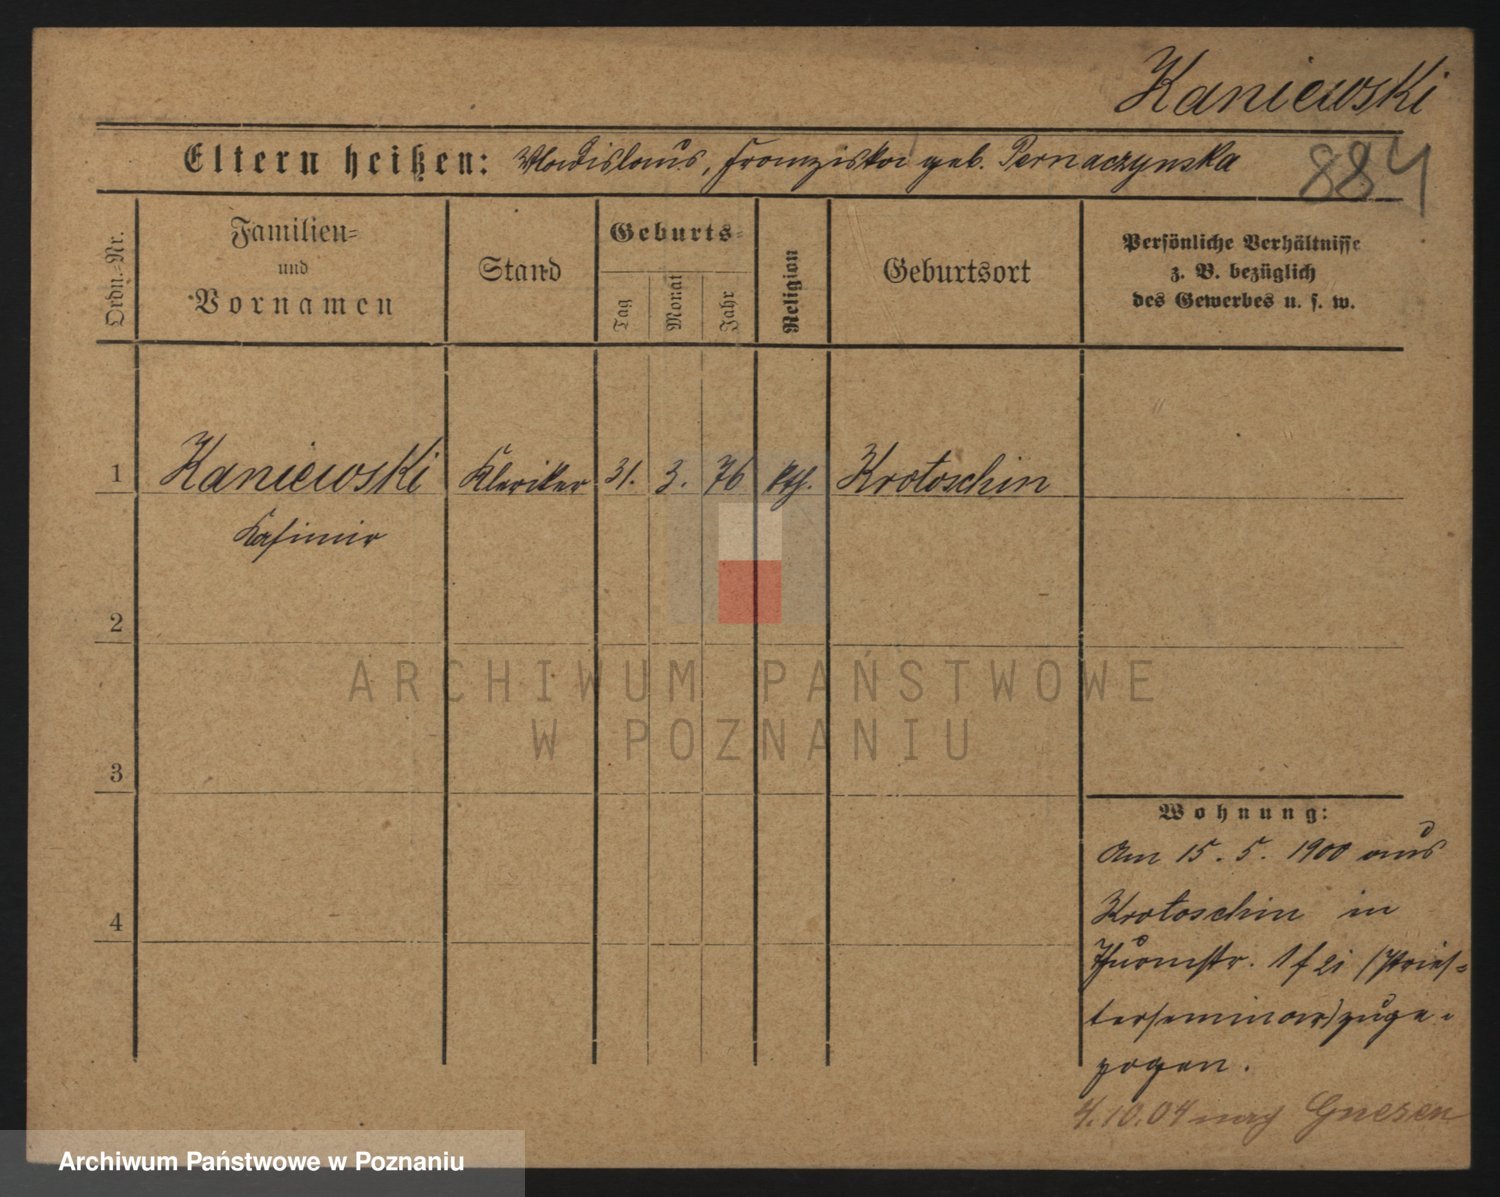 Kaniewski
884
Eltern heißen: Wladislaus, Franziska geb. Pernaczynska
Ordn.-Nr.
Familien-
und
Vornamen
Stand
Geburts-
Tag
Monat
Jahr
Religion
Geburtsort
Persönliche Verhältnisse
z. B. bezüglich
des Gewerbes u. s. w.
1 Kaniewski Kleriker 31. 3. 76 kth. Krotoschin
Kasimir
2
ARCHIWUM PAŃSTWOWE
W POZNANIU
3
Wohnung:
Am 15. 5. 1900 aus
Krotoschin in
4
Thurmstr. 1 bei (Pries-
terseminar) zuge-
zogen.
4.10.04 nach Gnesen
Archiwum Państwowe w Poznaniu